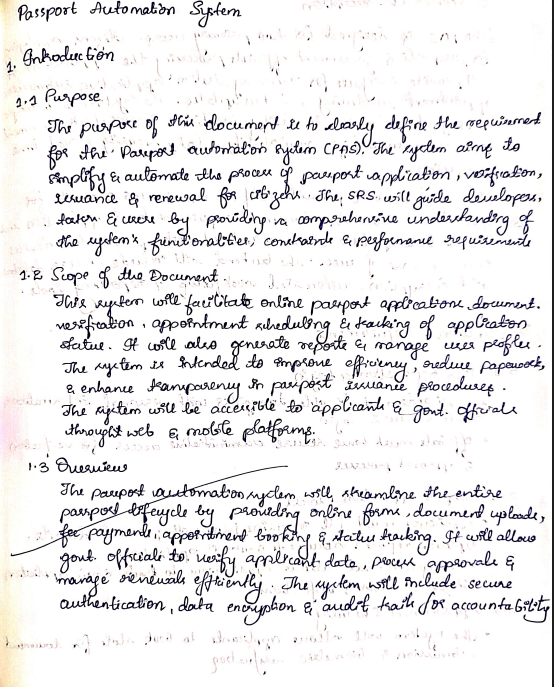 Passport Automation System
1. Introduction
1.1 Purpose
The purpose of this document is to clearly define the requirement
for the Passport automation system (PAS). The system aims to
simplify & automate the process of passport application, verification,
issuance & renewal for citizens. The SRS will guide developers,
testers & users by providing a comprehensive understanding of
the system's functionalities, constraints & performance requirements
1.2 Scope of the Document.
This system will facilitate online passport applications. document.
verification, appointment scheduling & tracking of application
status. It will also generate reports & manage user profiles.
The system is intended to improve efficiency, reduce paperwork,
& enhance transparency in passport issuance procedures.
The system will be accessible to applicants & govt. officials
throught web & mobile platforms.
1.3 Overview
The passport automation system will streamline the entire
passport lifecycle by providing online forms, document uploads,
fee payments, appointment booking & status tracking. It will allow
govt. officials to verify applicant data, process approvals &
manage renewals efficiently. The system will include secure
authentication, data encryption & audit trails for accountability